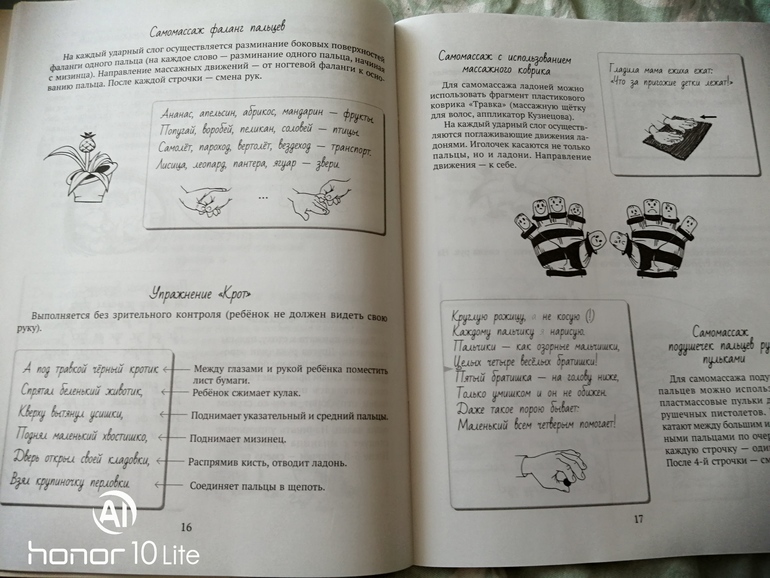 Самомассаж фаланг пальцев
На каждый ударный слог осуществляется разминание боковых поверхностей
фаланги одного пальца (на каждое слово — разминание одного пальца, начиная
с мизинца). Направление массажных движений — от ногтевой фаланги к осно-
ванию пальца. После каждой строчки — смена рук.
Ананас, апельсин, абрикос, мандарин — фрукты.
Попугай, воробей, пеликан, соловей — птицы.
Самолёт, пароход, вертолёт, вездеход — транспорт,
Лисица, леопард, пантера, ягуар — звери.
...
Упражнение «Крот»
Выполняется без зрительного контроля (ребёнок не должен видеть свою
руку).
А под травкой чёрный кротик
Между глазами и рукой ребёнка поместить
лист бумаги.
Спрятал беленький животик,
Ребёнок сжимает кулак.
Кверху вытянул усишки,
Поднимает указательный и средний пальцы.
Поднял маленький хвостишко,
Поднимает мизинец.
Дверь открыл своей кладовки,
Распрямив кисть, отводит ладонь.
Взял крупиночку перловки.
Соединяет пальцы в щепоть.
16
AI
honor 10 Lite
Самомассаж с использованием
массажного коврика
Для самомассажа ладоней можно
использовать фрагмент пластикового
коврика «Травка» (массажную щётку
для волос, аппликатор Кузнецова).
На каждый ударный слог осуществ-
ляются поглаживающие движения ла-
донями. Иголочек касаются не только
пальцы, но и ладони. Направление
движения — к себе.
Гладила мама ежиха ежат:
«Что за пригожие детки лежат!»
Круглую рожицу, а не косую (!)
Каждому пальчику я нарисую.
Пальчики — как озорные мальчишки,
Целых четыре весёлых братишки!
Пятый братишка — на голову ниже,
Только умишком и он не обижен.
Даже такое порою бывает:
Маленький всем четверым помогает!
Самомассаж
подушечек пальцев ру
пульками
Для самомассажа поду
пальцев можно использ
пластмассовые пульки д
рушечных пистолетов.
катают между большим и
ными пальцами по очер
каждую строчку — один
После 4-й строчки — см
17